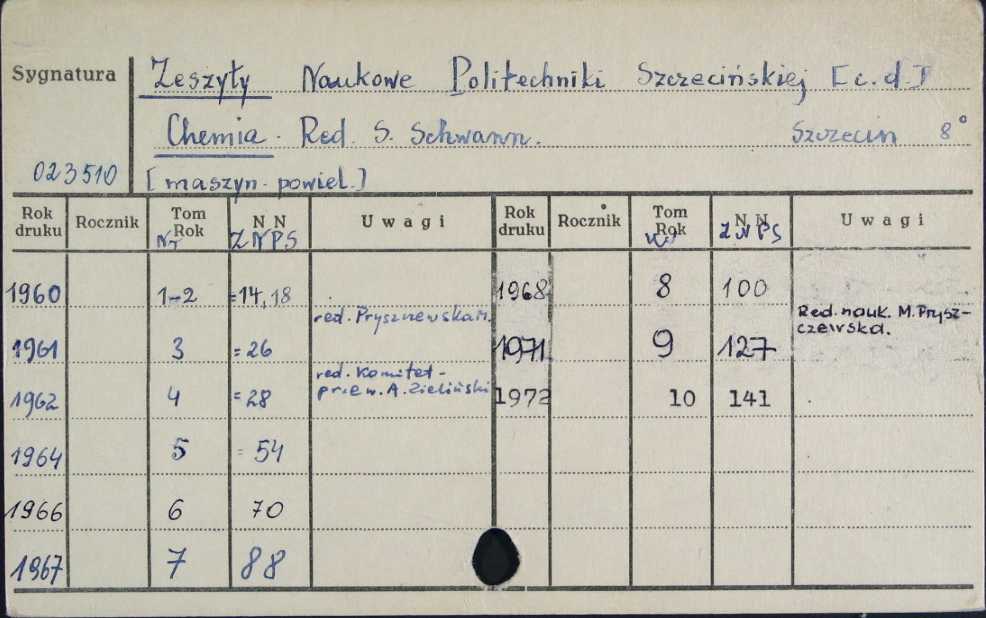 Sygnatura
Zeszyty Naukowe Politechniki Szczecińskiej [c.d]
Chemia. Red. S. Schwann. Szczecin 8°
023510
[maszyn. powiel.]
Rok druku Rocznik Tom Rok Nr N N ZNPS Uwagi Rok druku Rocznik Tom Rok N N ZNPS Uwagi
1960 1-2 =14,18 1968 8 100
red. Pryszczewska M. Red. nauk. M. Prysz-
czewska.
1961 3 =26 1971 9 127
red. Komitet -
przew. A. Zieliński
1962 4 =28 1972 10 141
1964 5 = 54
1966 6 70
1967 7 88